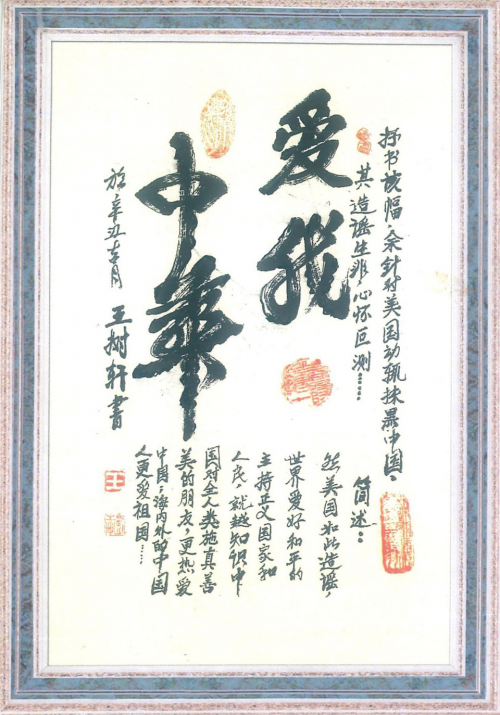 抒书该幅,余针对美国动辄抹黑中国,
其造谣生非,心怀叵测……
愛我
中華
简述:
然美国如此造谣,
世界爱好和平的
主持正义国家和
人民,就越知识中
国对全人类施真善
美的朋友,更热爱
中国;海内外的中国
人更爱祖国……
於辛丑吉月
王树轩書
王